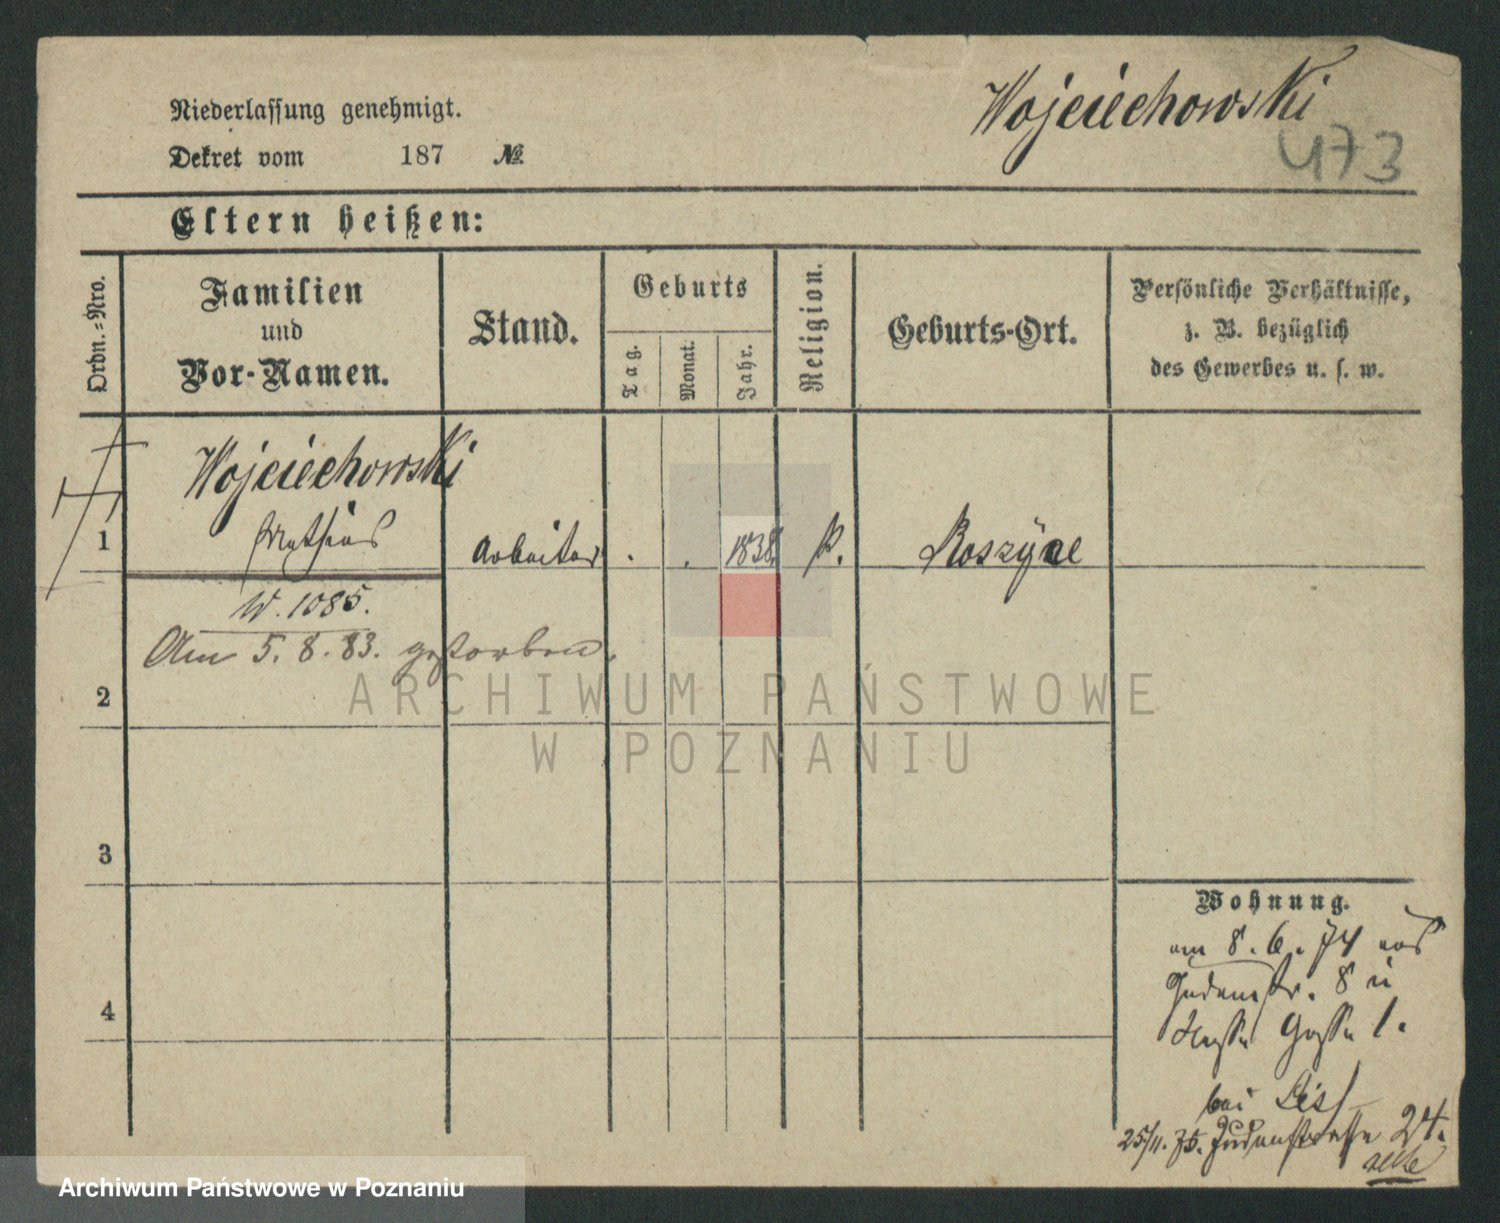 Wojciechowski
473
Niederlassung genehmigt.
Dekret vom 187 №
Eltern heißen:
Ordn.=Nro.
Familien
und
Vor-Namen.
Stand.
Geburts
Tag.
Monat.
Jahr.
Religion.
Geburts-Ort.
Persönliche Verhältnisse,
z. B. bezüglich
des Gewerbes u. s. w.
Wojciechowski
1 Mathias Arbeiter . . 1838. k.
W. 1085.
Am 5. 8. 83. gestorben.
2
3
4
Wohnung.
am 8. 6. 74 aus
Judenstr. 8 in
Gasse 1.
bei List
25/11. 75. Judenstrasse 24.
ARCHIWUM PAŃSTWOWE
W POZNANIU
Archiwum Państwowe w Poznaniu